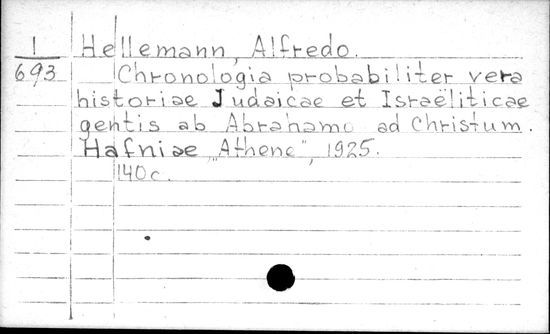 1 Hellemann, Alfredo.
693 Chronologia probabiliter vera
historiae Judaicae et Israëliticae
gentis ab Abrahamo ad Christum.
Hafniae „Athene", 1925.
140c.